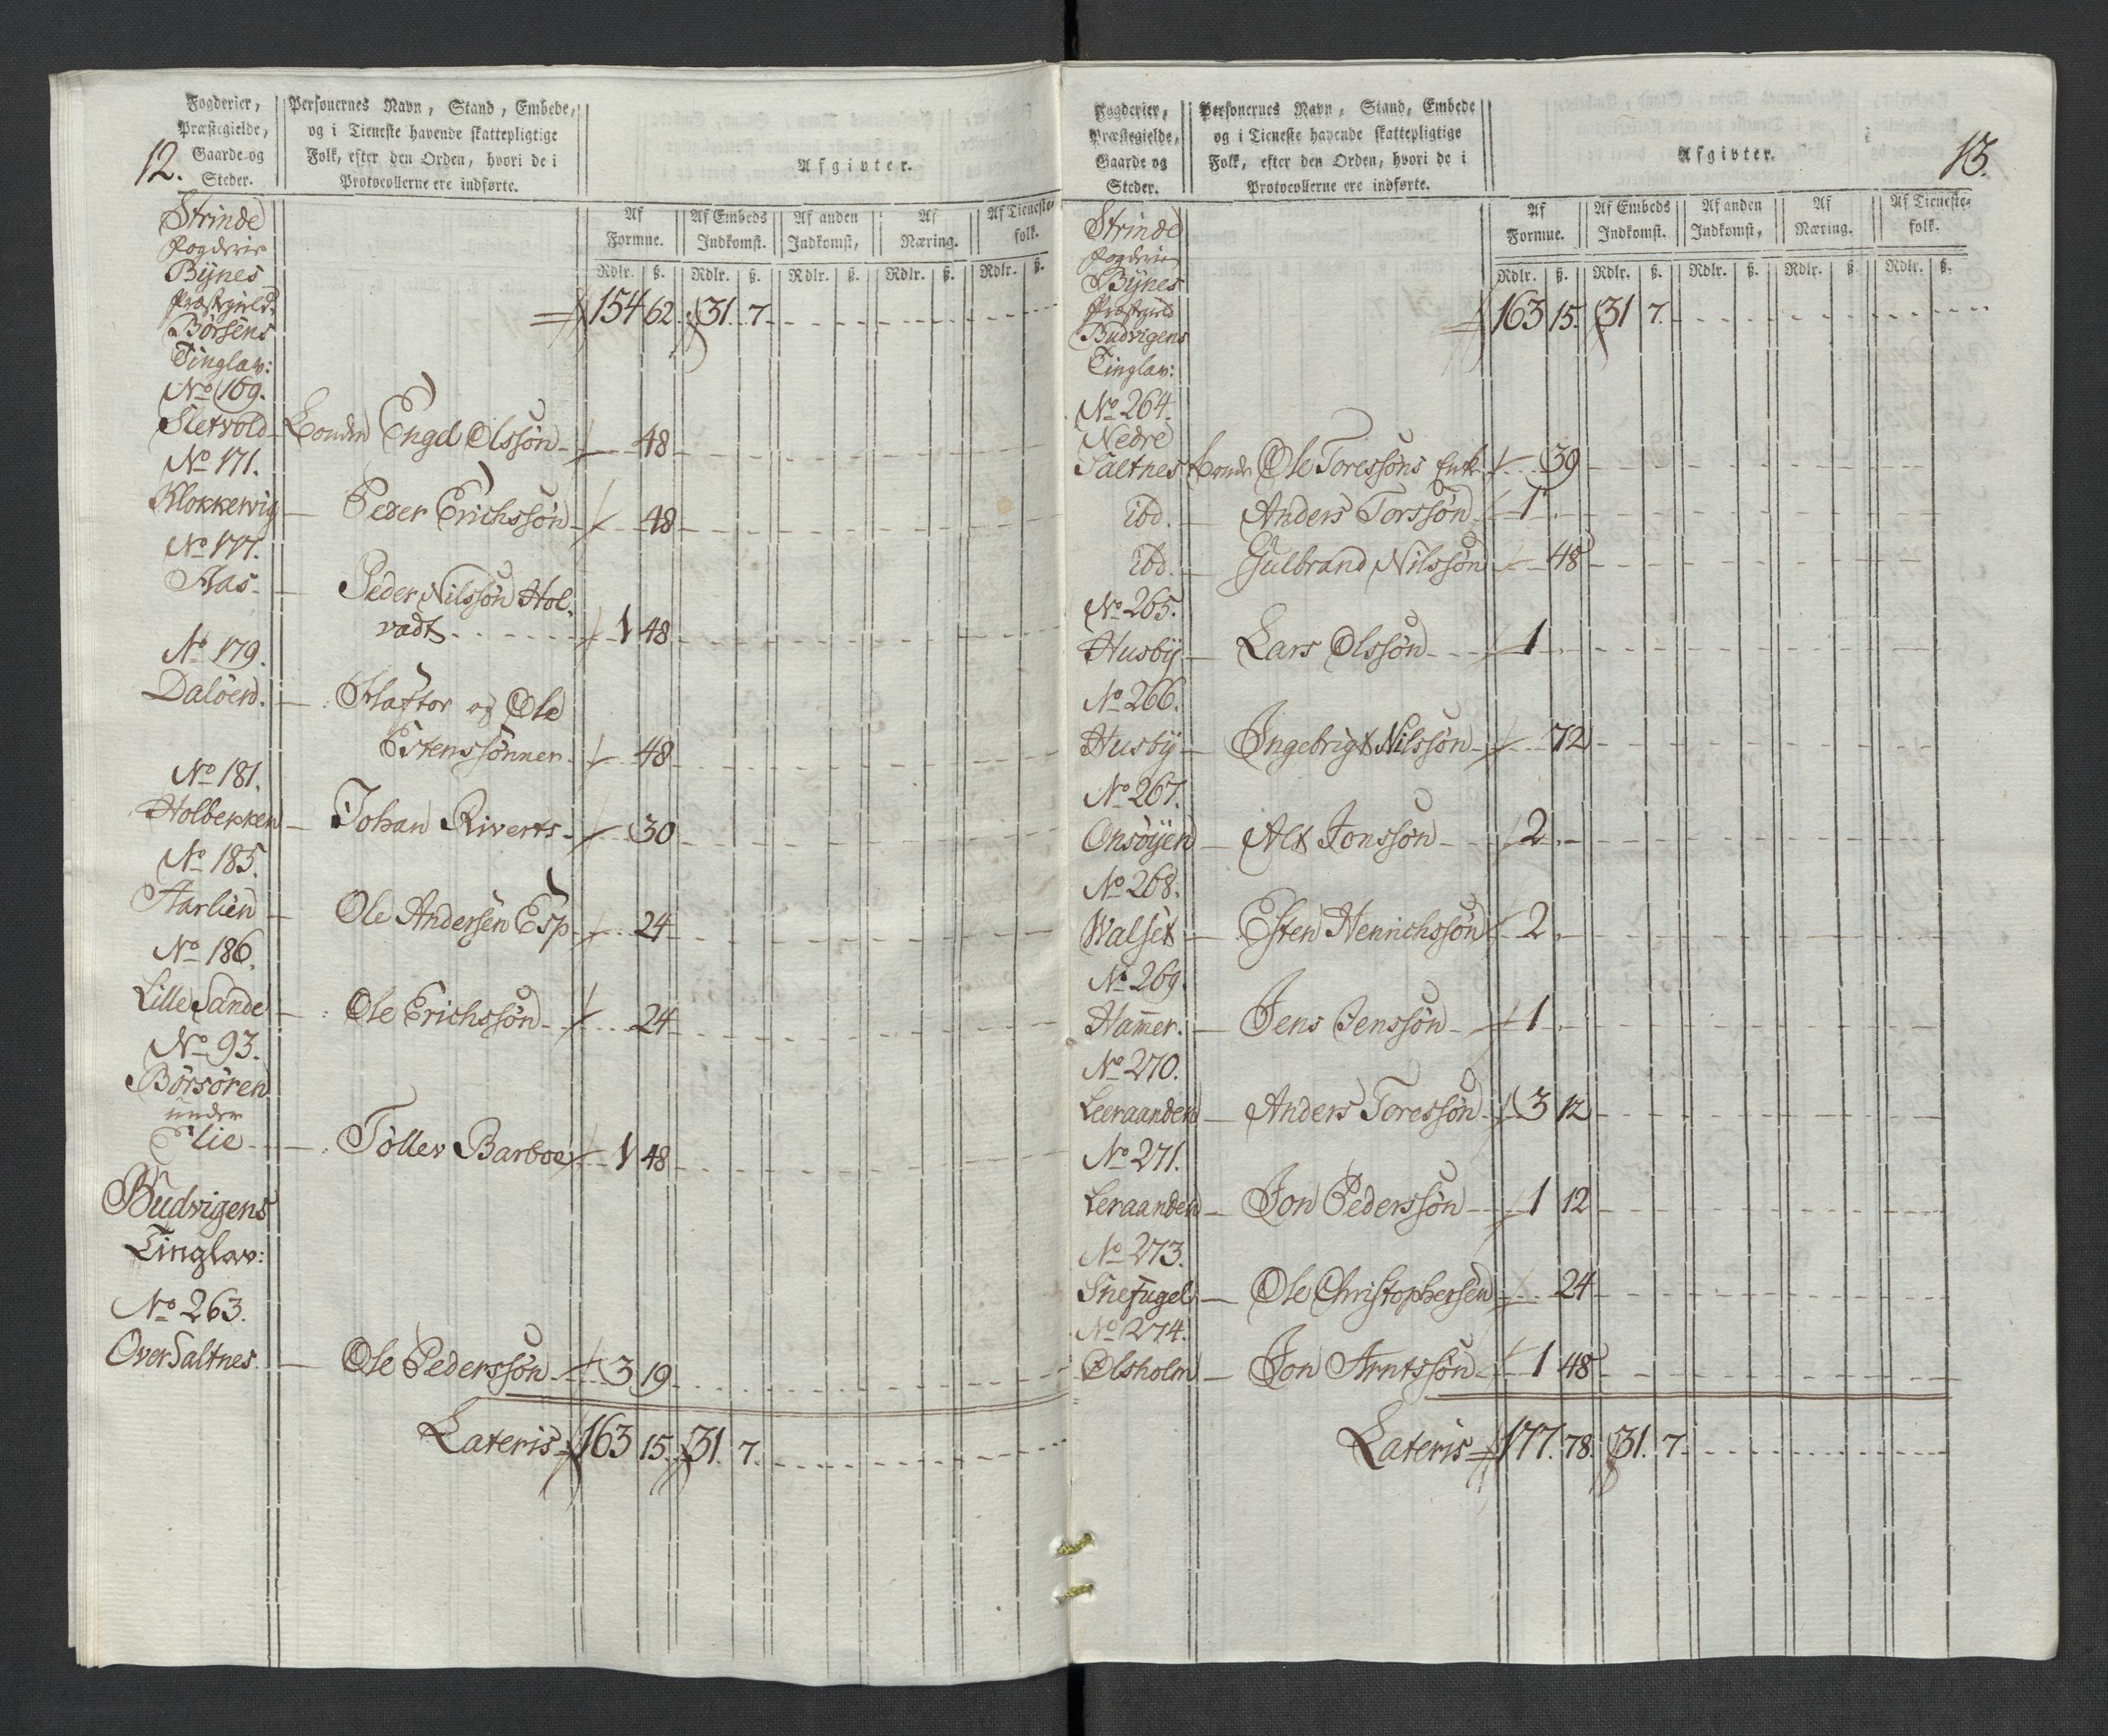 12.
Fogderier,
Præstegielde,
Gaarde og
Steder.
Personernes Navn, Stand, Embede,
og i Tieneste havende skattepligtige
Folk, efter den Orden, hvori de i
Protocollerne ere indførte.
Afgivter.
Af Formue. Af Embeds Indkomst. Af anden Indkomst, Af Næring. Af Tieneste- folk.
Rdlr. ß. Rdlr. ß. Rdlr. ß. Rdlr. ß. Rdlr. ß.
Strinde
Fogderie
Bÿnes
Præstegield
Börsens
Tinglav:
154 62. 31. 7.
No 169.
Sletvold Bonden Engel Olssön 48
No 171.
Klokkervig — Peder Erichssön 48
No 177.
Aas — Peder Nilssön Hol-
vadt 1 48
No 179.
Daloen. — Haftor og Ole
Estenssönner 48
No 181.
Holbekken — Johan Riverts 30
No 185.
Aarlien — Ole Andersen Esp 24
No 186.
Lille Sande — Ole Erichssön 24
No 93.
Börsören
under
Elie — Töller Barboe 1 48
Budvigens
Tinglav:
No 263.
Over Saltnes. — Ole Pederssön 3 19
Lateris 163 15. 31. 7.
13.
Fogderier,
Præstegielde,
Gaarde og
Steder.
Personernes Navn, Stand, Embede
og i Tieneste havende skattepligtige
Folk, efter den Orden, hvori de i
Protocollerne ere indførte.
Afgivter.
Af Formue. Af Embeds Indkomst. Af anden Indkomst, Af Næring. Af Tieneste- folk.
Rdlr. ß. Rdlr. ß. Rdlr. ß. Rdlr. ß. Rdlr. ß.
Strinde
Fogderie
Bÿnes
Præstegield
Budvigens
Tinglav:
163 15. 31 7.
No 264.
Nedre
Saltnes Bonde Ole Toressöns Enke 39
ibd. — Anders Torssön 1
ibd. — Gulbrand Nilssön 48
No 265.
Husbÿ — Lars Olssön 1
No 266.
Husbÿ — Ingebrigt Nilssön 72
No 267.
Onsöÿen — Alt Jonssön 2
No 268.
Walset — Esten Henrichssön 2
No 269.
Ham̄er. — Jens Jenssön 1
No 270.
Leeraanden — Anders Toressön 3 12
No 271.
Leraanden — Jon Pederssön 1 12
No 273.
Snefugel — Ole Christophersen 24
No 274.
Olsholm — Jon Arntssön 1 48
Lateris 177. 78. 31. 7.